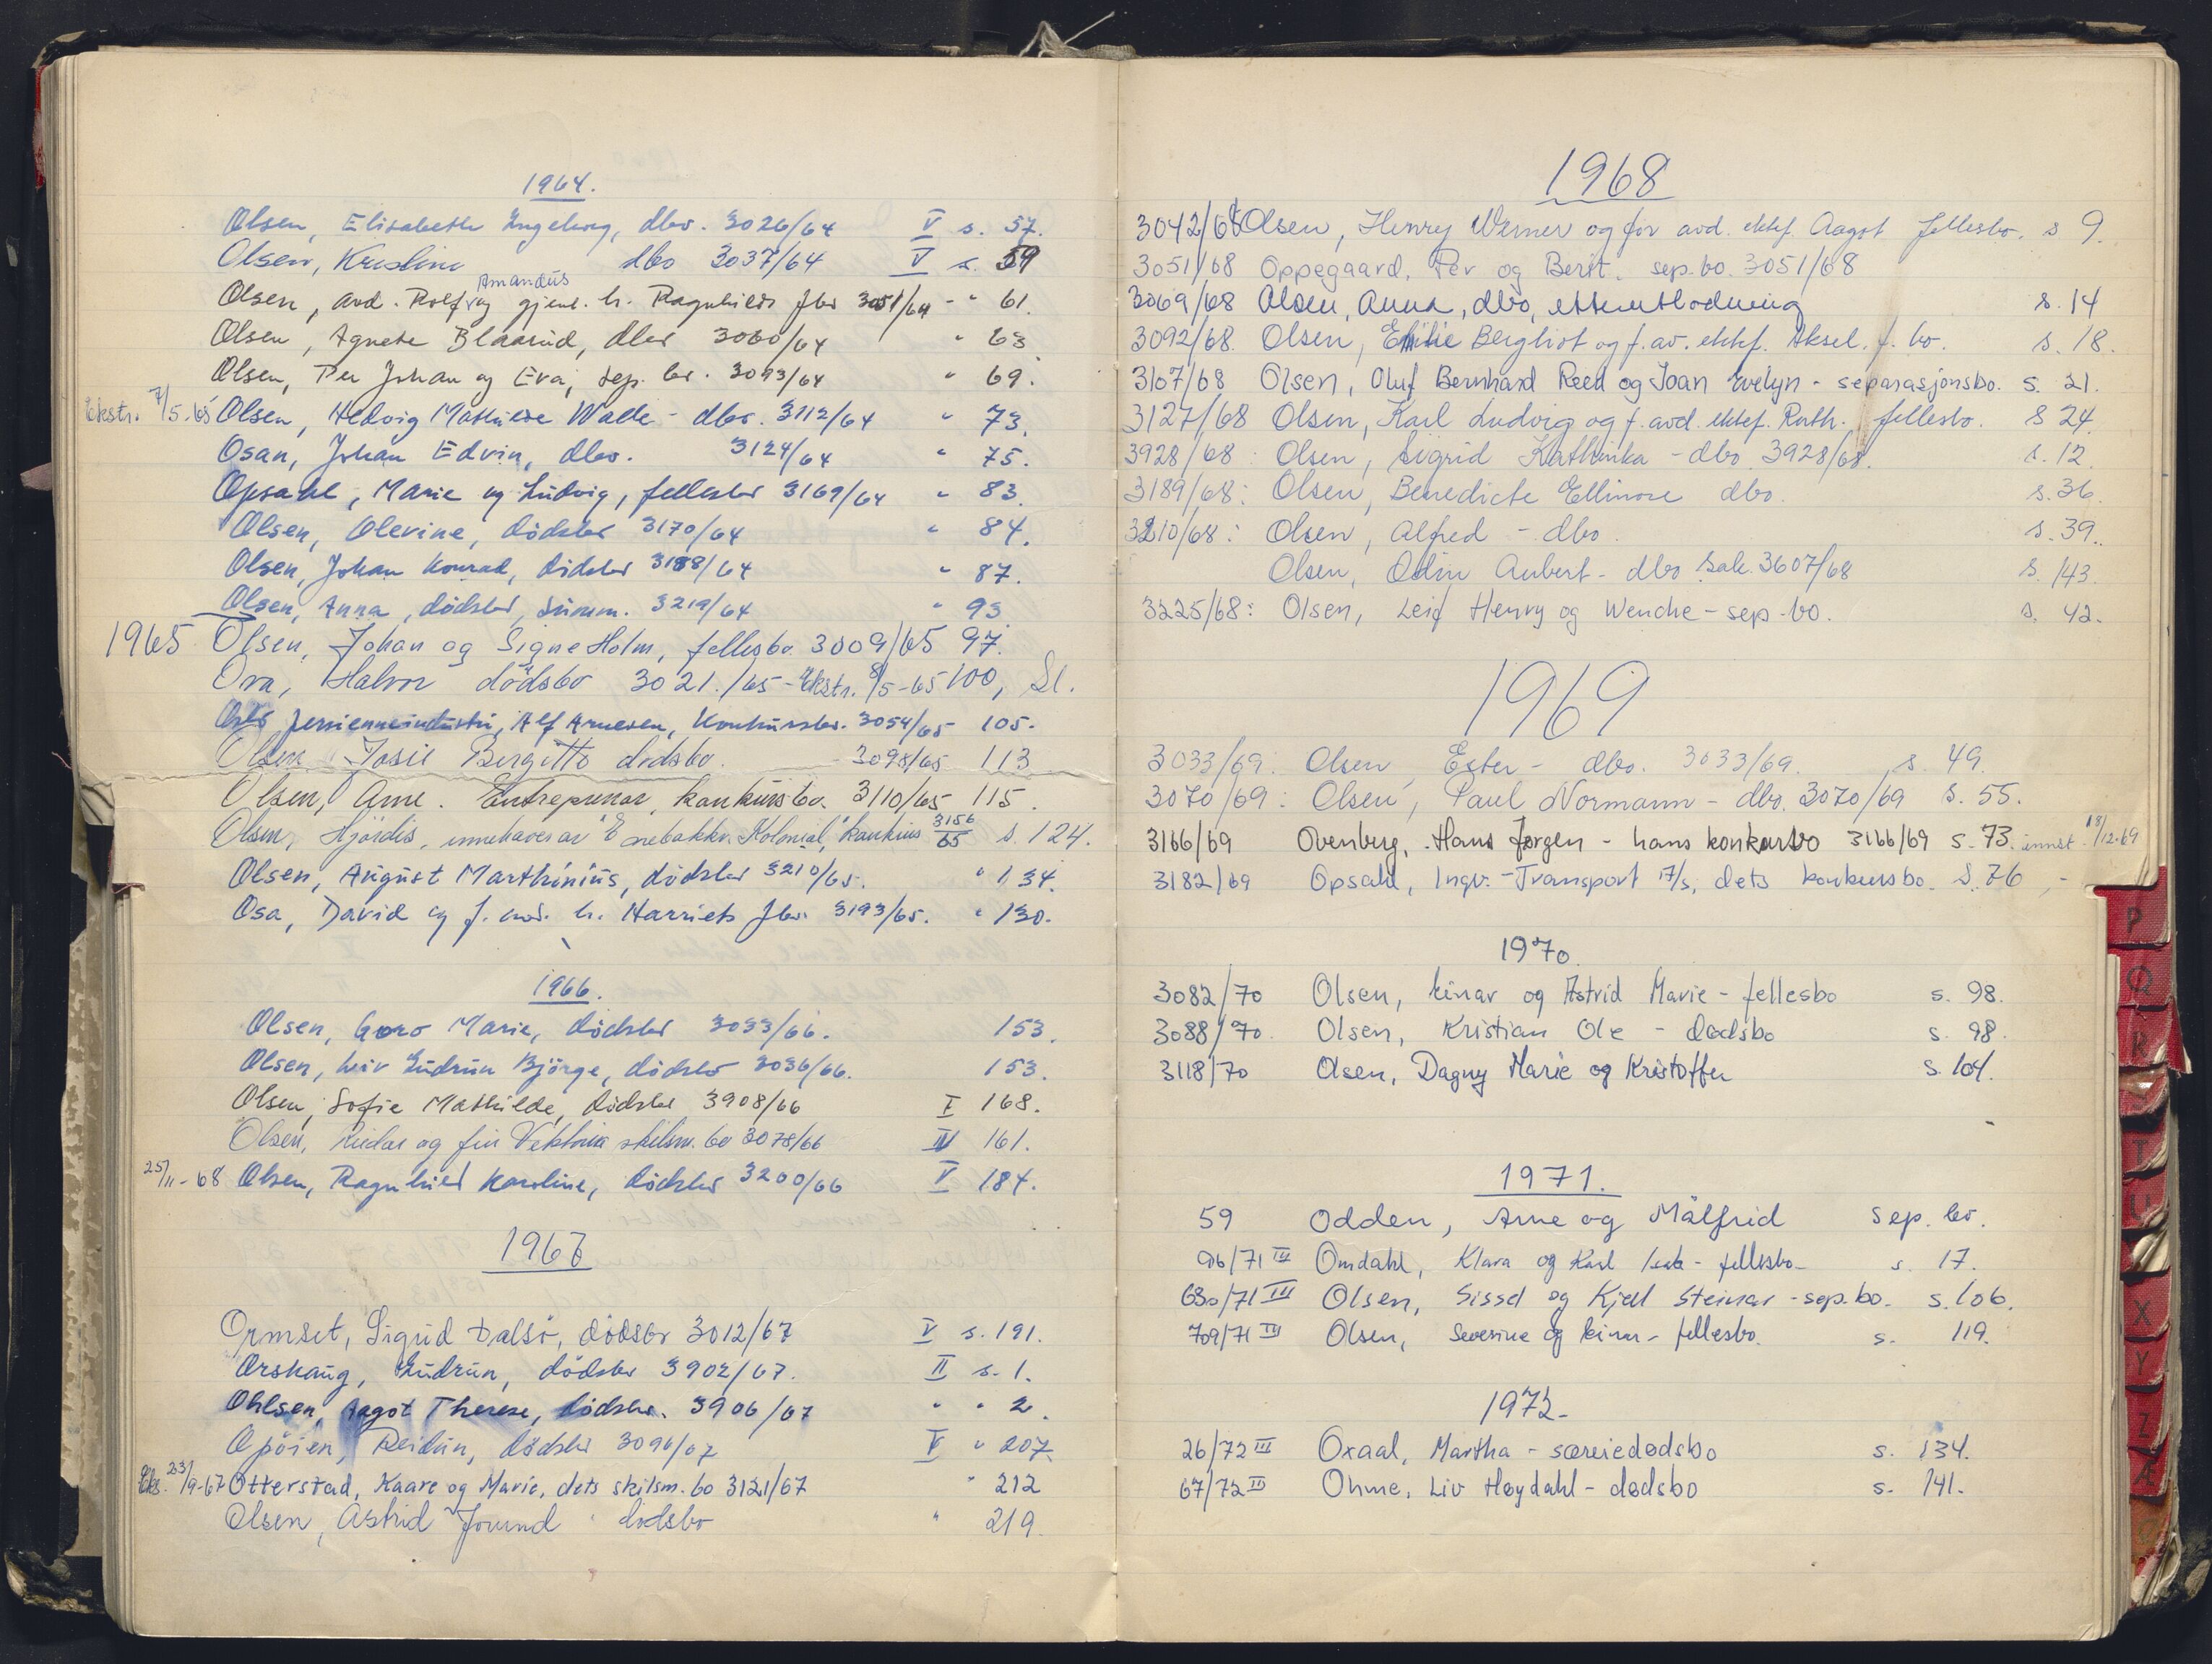 1964.
Olsen, Elisabeth Ingeborg, dbo. 3026/64 V s. 57.
Olsen, Kristine dbo 3037/64 V s. 59
Amandus
Olsen, avd. Rolf og gjenl. h. Ragnhilds fbo 3051/64 - " 61.
Olsen, Agnete Blaarud, dbo 3060/64 " 63.
Olsen, Per Johan og Eva, sep. bo. 3093/64 " 69.
Ekstr. 7/5-65 Olsen, Hedvig Mathilde Walle - dbo. 3112/64 " 73.
Osan, Johan Edvin, dbo. 3124/64 " 75.
Opsahl, Marie og Ludvig, fellesbo 3169/64 " 83.
Olsen, Olevine, dödsbo 3170/64 " 84.
Olsen, Johan Konrad, dödsbo 3188/64 " 87.
Olsen, Anna, dödsbo, summ. 3219/64 " 93
1965 Olsen, Johan og Signe Holm, fellesbo 3009/65 97.
Ova, Halvor dödsbo 3021./65 - Ekstr. 8/5-65 100, Sl.
Oslo persienneindustri, Alf Arnesen, Konkursbo. 3054/65 105.
Olsen, Josie Bergitte dödsbo. 3098/65 113
Olsen, Arne. Entreprenør, konkursbo. 3110/65 115.
Olsen, Hjördis, innehaver av "Enebakkv. Kolonial," konkurs 3156/65 s. 124.
Olsen, August Marthinius, dödsbo 3210/65. " 134.
Osa, David og f. avd. h. Harriets fbo. 3193/65. " 130.
1966.
Olsen, Goro Marie, dödsbo 3033/66. 153.
Olsen, Liv Gudrun Björge, dödsbo 3036/66. 153.
Olsen, Sofie Mathilde, dödsbo 3908/66 I 168.
Olsen, Reidar og Viktoria skilsm. bo 3078/66 IV 161.
25/11-68 Olsen, Ragnhild Karoline, dödsbo 3200/66 V 184.
1967
Ormset, Sigrid Dalsö, dödsbo 3012/67 V s. 191.
Orskaug, Gudrun, dödsbo 3902/67. II s. 1.
Ohlsen, Aagot Therese, dödsbo. 3906/67 " " 2.
Opöien, Reidun, dödsbo 3096/67 V " 207.
Eks. 23/9-67 Otterstad, Kaare og Marie, dets skilsm. bo 3121/67 " 212
Olsen, Astrid Jorund dödsbo " 219
1968
3042/68 Olsen, Henry Werner og for avd. ektef. Aagot fellesbo. s 9.
3051/68 Oppegaard, Per og Berit. sep. bo. 3051/68
3069/68 Olsen, Anna, dbo, etterutlodning s. 14
3092/68. Olsen, Emilie Bergliot og f. av. ektef. Aksel. f. bo. s. 18.
3107/68 Olsen, Oluf Bernhard Reed og Joan Evelyn - separasjonsbo. s. 21.
3127/68 Olsen, Karl Ludvig og f. avd. ektef. Ruth. fellesbo. s 24.
3928/68: Olsen, Sigrid Kathinka - dbo 3928/68. s. 12.
3189/68: Olsen, Benedicte Ellinore dbo. s. 36.
3210/68: Olsen, Alfred - dbo. s. 39.
Olsen, Odin Aubert - dbo sak. 3607/68 s. 143.
3225/68: Olsen, Leif Henry og Wenche - sep-bo. s. 42.
1969
3033/69: Olsen, Ester - dbo. 3033/69. s. 49.
3070/69: Olsen, Paul Normann - dbo. 3070/69 s. 55.
3166/69 Ovenberg, Hans Jørgen - hans konkursbo 3166/69 s. 73. innst. 18/12-69
3182/69 Opsahl, Ingv. - Transport A/S, dets konkursbo. s. 76,-
1970.
3082/70 Olsen, Einar og Astrid Marie - fellesbo s. 98.
3088/70. Olsen, Kristian Ole - dødsbo s. 98.
3118/70 Olsen, Dagny Marie og Kristoffer s. 104.
1971.
59 Odden, Arne og Målfrid sep. bo.
96/71 III Omdahl, Klara og Karl - fellesbo - s. 17.
630/71 III Olsen, Sissel og Kjell Steinar - sep. bo. s. 106.
709/71 III Olsen, Severine og Einar - fellesbo. s. 119.
1972-
26/72 III Oxaal, Martha - særeiedødsbo s. 134.
67/72 III Ohme, Liv Høydahl - dødsbo s. 141.
P
Q
R
T
U
X
Y
Z
Æ